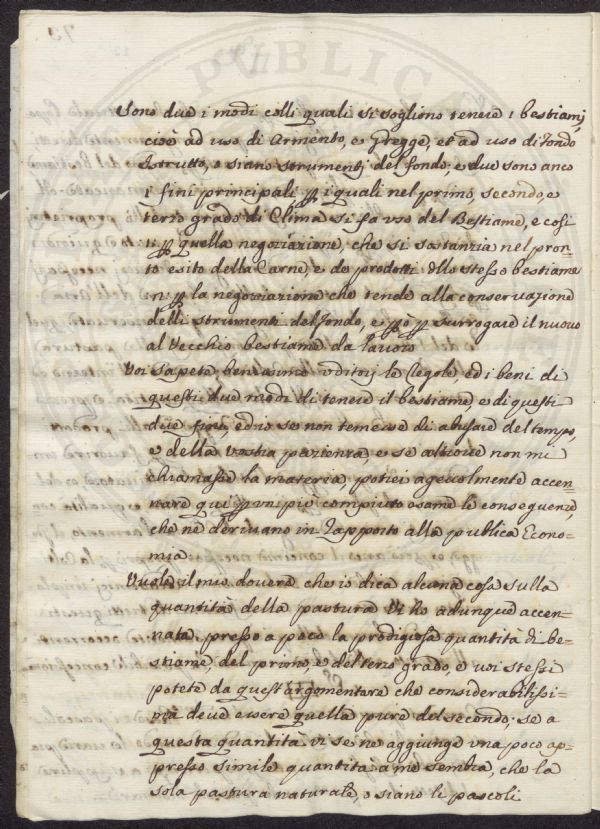 Sono due i modi colli quali si sogliono tenere i bestiami,
cioè ad uso di Armento, e Gregge, et ad uso di Fondo
Istrutto, o siano strumenti del fondo: e due sono anco
i fini principali p i quali nel primo, secondo, e
terzo grado di Clima si fa uso del Bestiame, e cosi
p quella negoziazione, che si sostanzia nel pron=
to esito della Carne, e de prodotti dllo stesso bestiame
p la negoziazione che tende alla conservazione
delli strumenti del fondo, e ciò è p surrogare il nuovo
al Vecchio bestiame da lavoro
Voi sapete benissimo uditorj le Regole, ed i beni di
questi due modi di tenere il bestiame, e di questi
due fini, ed io se non temesse di abusare del tempo,
e della vostra pazienza, e se altrove non mi
chiamasse la materia, potrei agevolmente accen=
nare qui p un più compiuto esame le conseguenze,
che ne derivano in rapporto alla publica Econo=
mia.
Vuole il mio dovere che io dica alcuna cosa sulla
quantità della pastura Vi ho adunque accen=
nata presso a poco la prodigiosa quantità di be=
stiame del primo, e del terzo grado, e voi stessi
potete da quest'argomentare che considerabilissi=
ma deve essere quella pure del secondo: se a
questa quantità vi se ne aggiunge una poco ap=
presso simile quantità a me sembra, che la
sola pastura naturale, o siano li pascoli